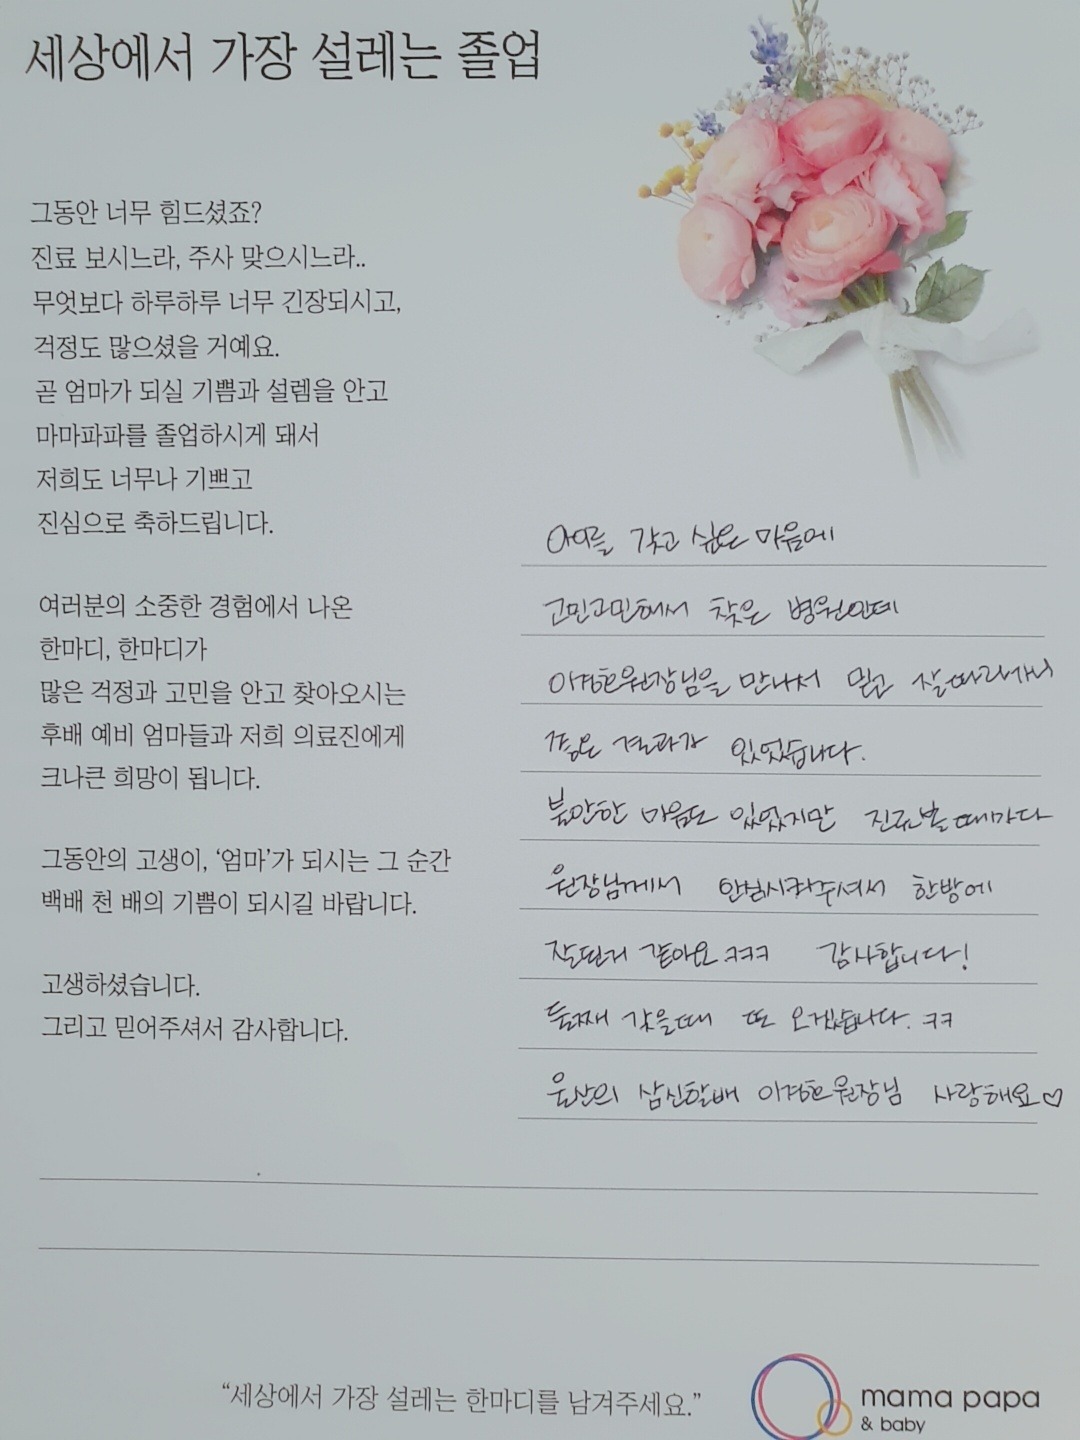 세상에서 가장 설레는 졸업
그동안 너무 힘드셨죠?
진료 보시느라, 주사 맞으시느라..
무엇보다 하루하루 너무 긴장되시고,
걱정도 많으셨을 거예요.
곧 엄마가 되실 기쁨과 설렘을 안고
마마파파를 졸업하시게 돼서
저희도 너무나 기쁘고
진심으로 축하드립니다.
여러분의 소중한 경험에서 나온
한마디, 한마디가
많은 걱정과 고민을 안고 찾아오시는
후배 예비 엄마들과 저희 의료진에게
크나큰 희망이 됩니다.
그동안의 고생이, ‘엄마’가 되시는 그 순간
백배 천 배의 기쁨이 되시길 바랍니다.
고생하셨습니다.
그리고 믿어주셔서 감사합니다.
아이를 갖고 싶은 마음에
고민고민해서 찾은 병원인데
이경현원장님을 만나서 믿고 잘따라가니
좋은 결과가 있었습니다.
불안한 마음도 있었지만 진료볼때마다
원장님께서 안심시켜주셔서 한방에
잘된거 같아요 ㅋㅋㅋ 감사합니다!
둘째 갖을때 또 오겠습니다. ㅋㅋ
삼신할배 원장님 사랑해요♡
“세상에서 가장 설레는 한마디를 남겨주세요.”
mama papa
& baby